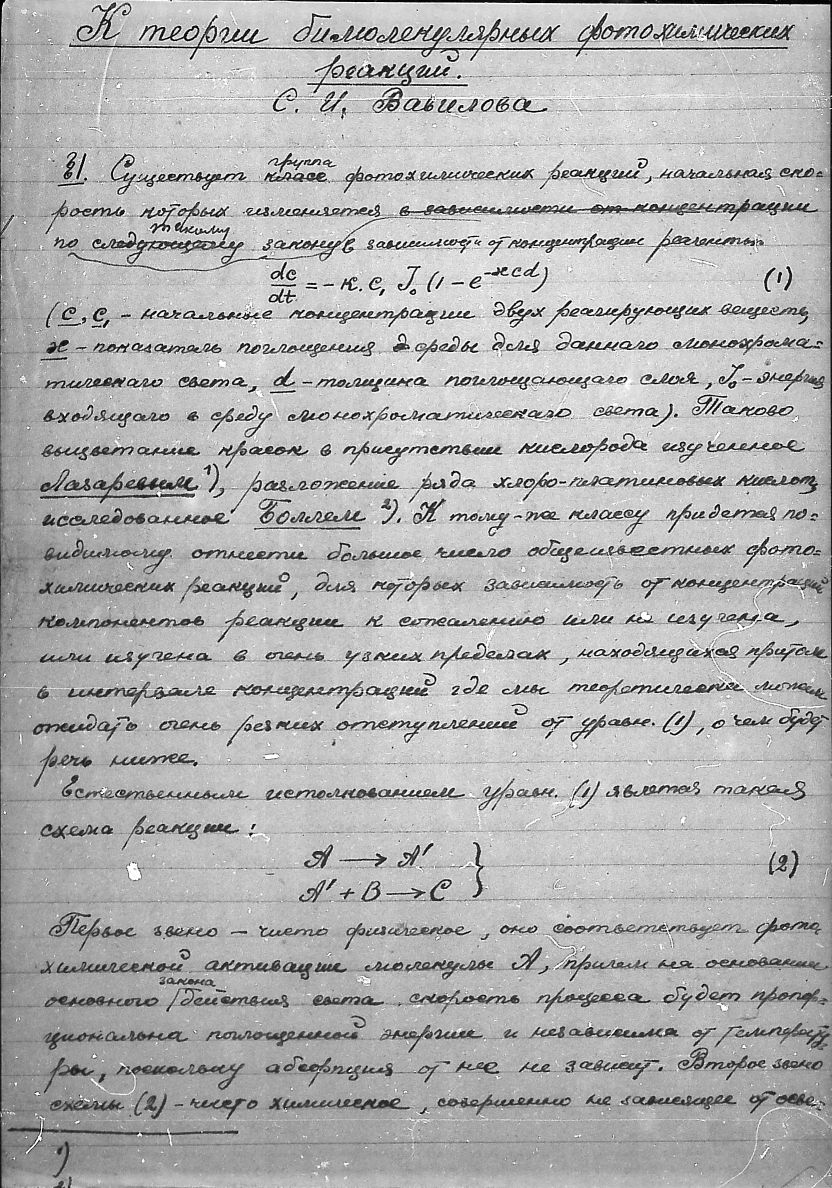 К теории бимолекулярных фотохимических
реакций.
С. И. Вавилова
§1. Существует группа класс фотохимических реакций, начальная ско-
рость которых изменяется в зависимости от концентрации
по следующему такому закону в зависимости от концентрации реагента.
dc/dt = - к. c, J₀ (1 - e^-ϰcd) (1)
(c, c₁ - начальные концентрации двух реагирующих веществ,
ϰ - показатель поглощения среды для даннаго монохрома-
тическаго света, d - толщина поглощающаго слоя, J₀ - энергия
входящаго в среду монохроматическаго света). Таково
выцветание красок в присутствии кислорода изученное
Лазаревым ¹), разложение ряда хлоро-платиновых кислот,
исследованное Боллем ²). К тому-же классу придется по-
видимому отнести большое число общеизвестных фото-
химических реакций, для которых зависимость от концентраций
компонентов реакции к сожалению или не изучена,
или изучена в очень узких пределах, находящихся притом
в интервале концентраций где мы теоретически можем
ожидать очень резких отступлений от уравн. (1), о чем будет
речь ниже.
Естественным истолкованием уравн. (1) является такая
схема реакции:
A → A'
A' + B → C } (2)
Первое звено - чисто физическое, оно соответствует фото-
химической активации молекулы А, причем на основании
основного закона действия света скорость процесса будет пропор-
циональна поглощенной энергии и независима от температу-
ры, поскольку абсорпция от нее не зависит. Второе звено
схемы (2) - чисто химическое, совершенно не зависящее от осве-
¹)
²)